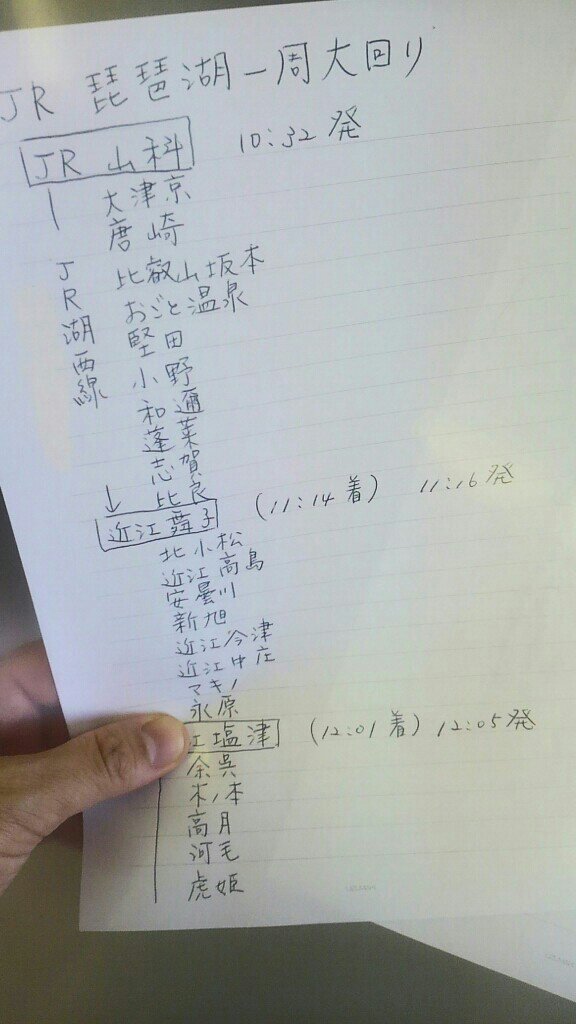 JR 琵琶湖一周大回り
JR 山科 10:32 発
大津京
唐崎
比叡山坂本
おごと温泉
堅田
小野
和邇
蓬莱
志賀
比良
JR湖西線
近江舞子 (11:14 着) 11:16 発
北小松
近江高島
安曇川
新旭
近江今津
近江中庄
マキノ
永原
江塩津 (12:01 着) 12:05 発
余呉
木ノ本
高月
河毛
虎姫